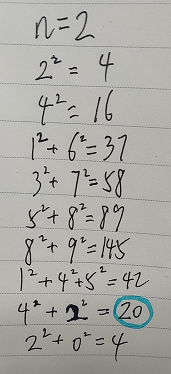 n=2
2² = 4
4² = 16
1² + 6² = 37
3² + 7² = 58
5² + 8² = 89
8² + 9² = 145
1² + 4² + 5² = 42
4² + 2² = 20
2² + 0² = 4